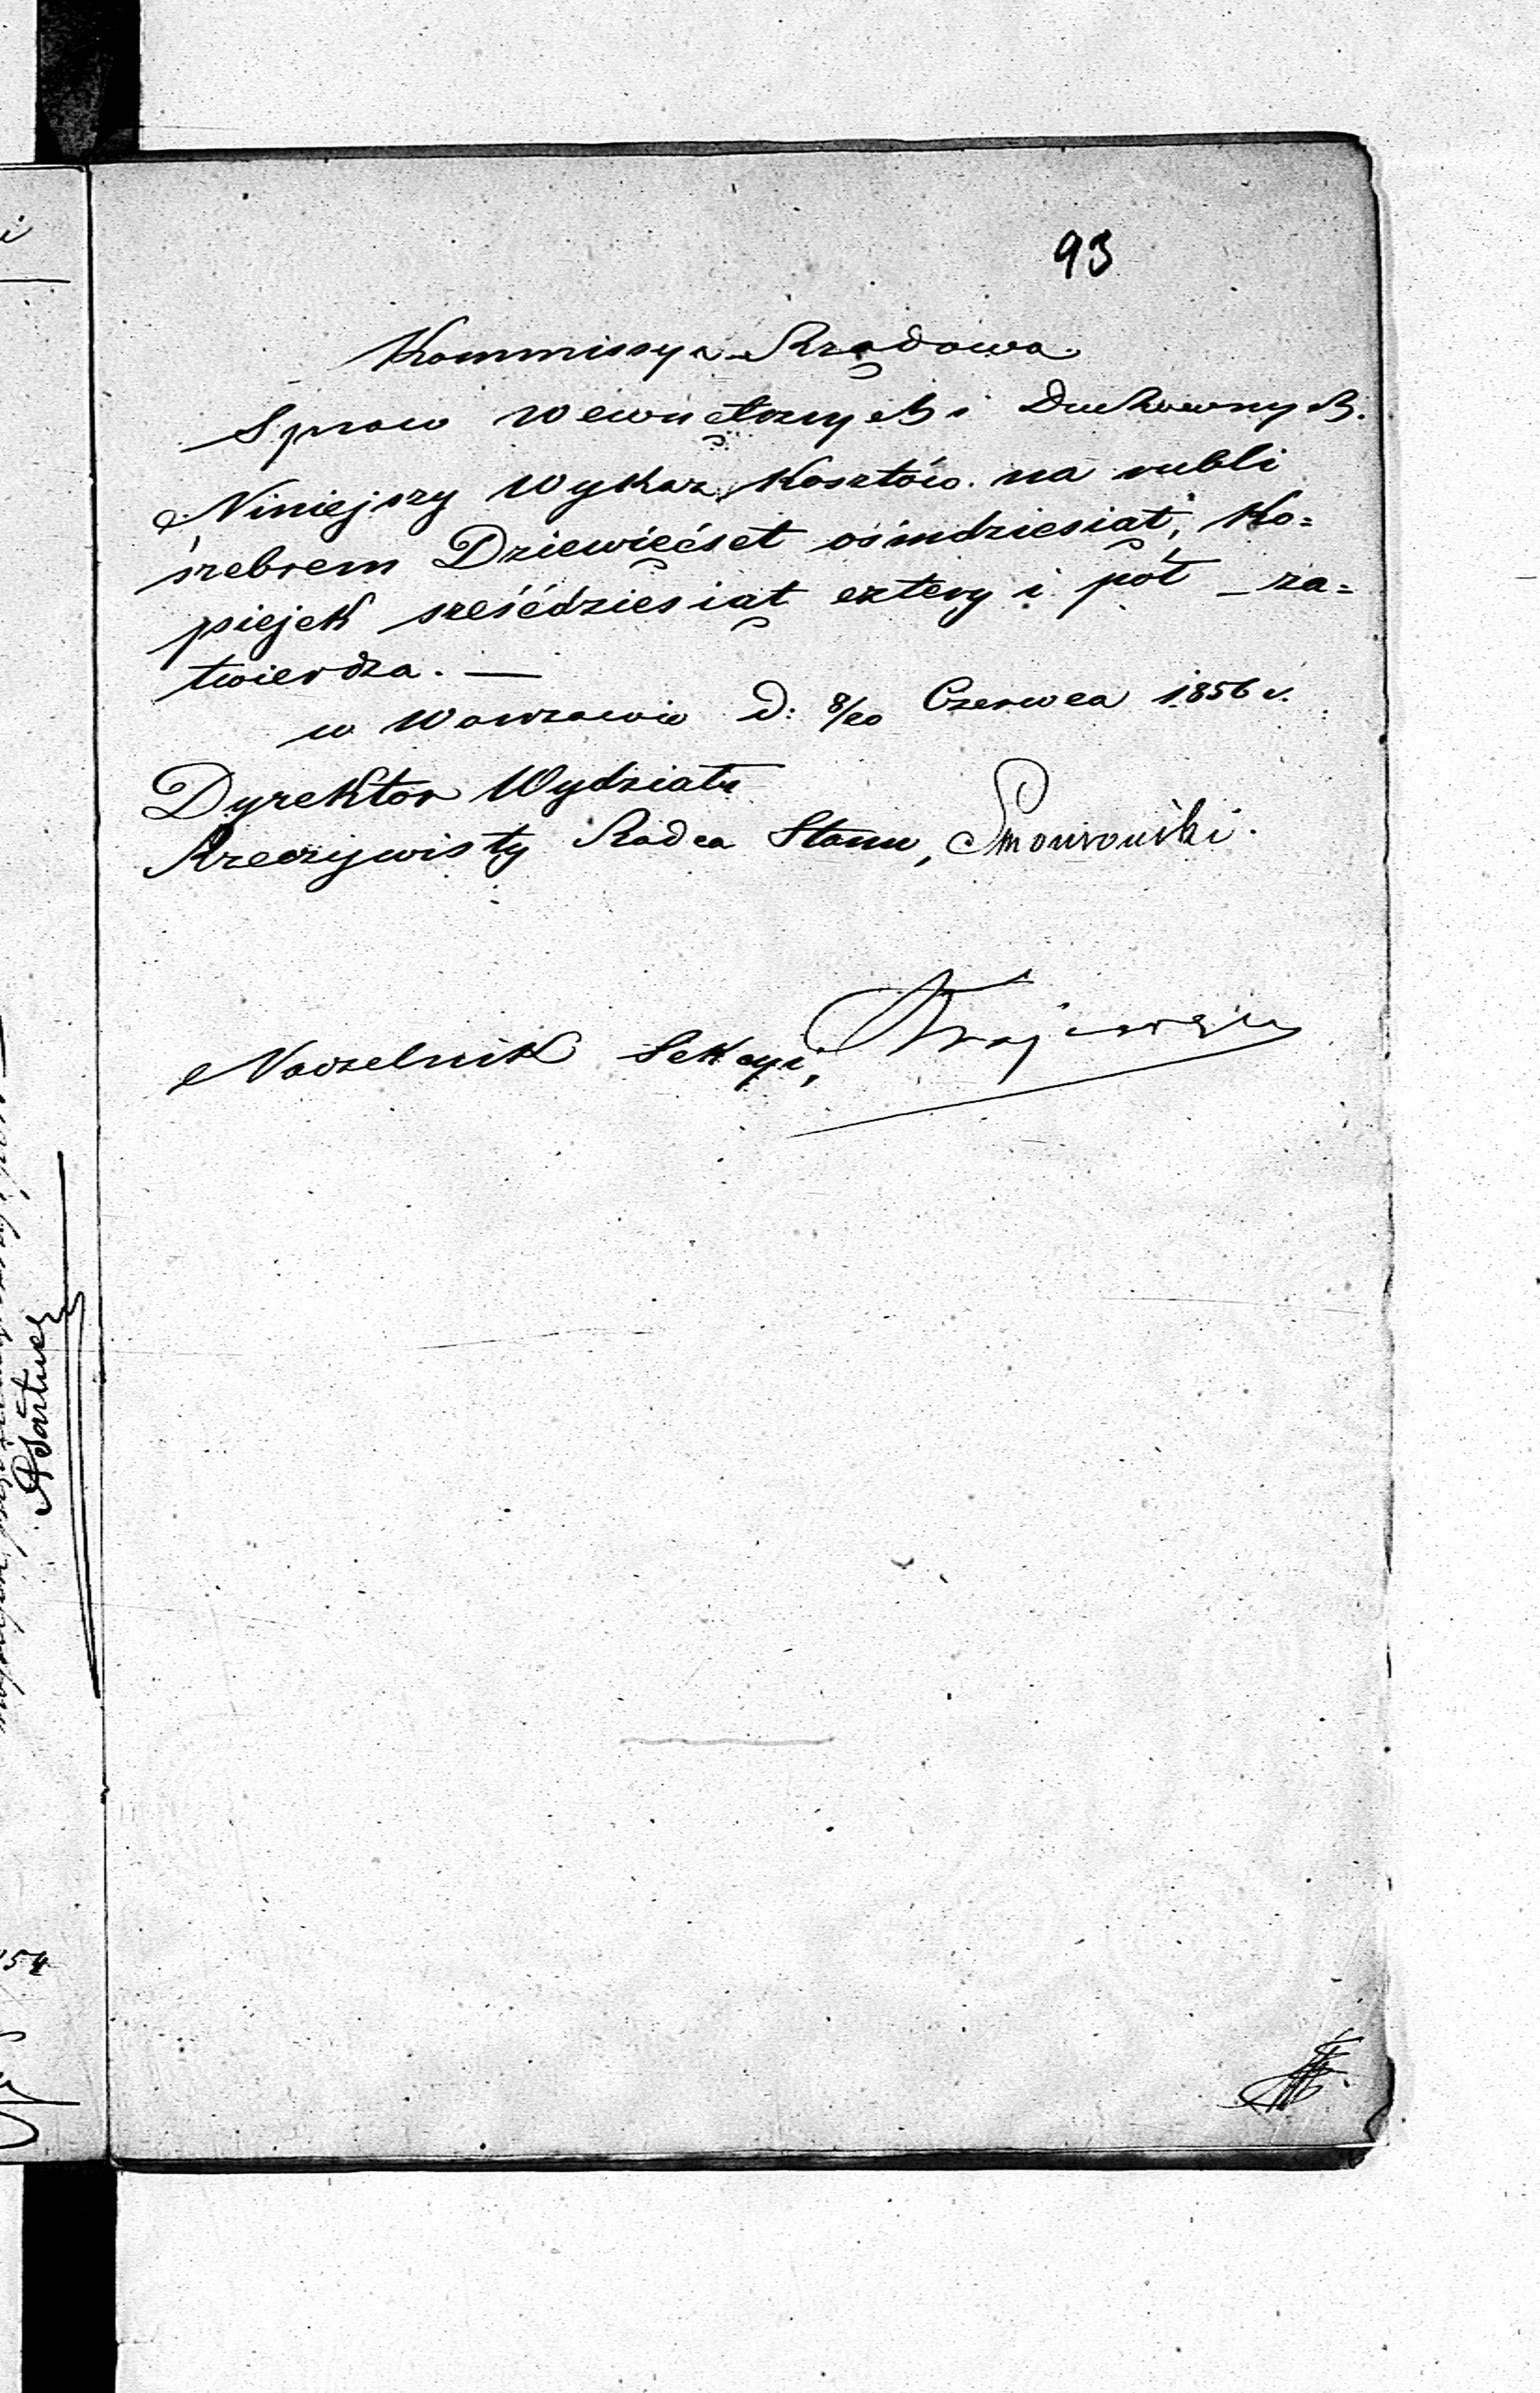 93
Kommissya Rządowa
Spraw Wewnętrznych i Duchownych.
Niniejszy Wykaz Kosztów na rubli
srebrem Dziewięćset ośmdziesiąt, Ko=
piejek sześćdziesiąt cztery i pół – za=
twierdza. —
w Warszawie d: 8/20 Czerwca 1856 r.
Dyrektor Wydziału
Rzeczywisty Radca Stanu,
Naczelnik Sekcyi,